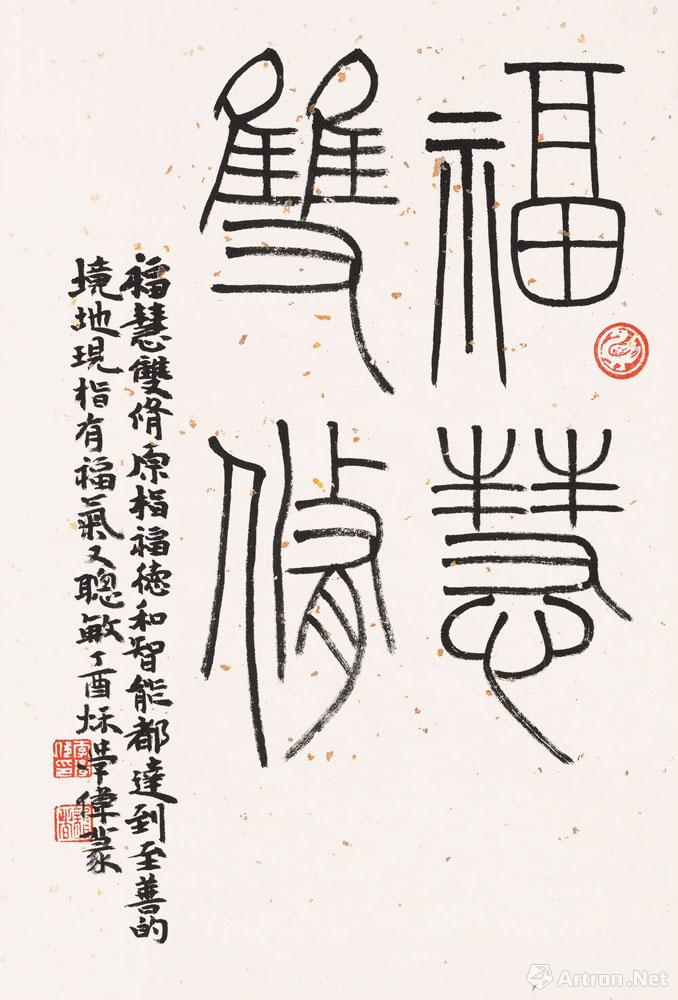 福慧
雙脩
福慧雙脩原指福德和智能都達到至善的
境地現指有福氣又聰敏丁酉秌學偉篆
Artron.Net